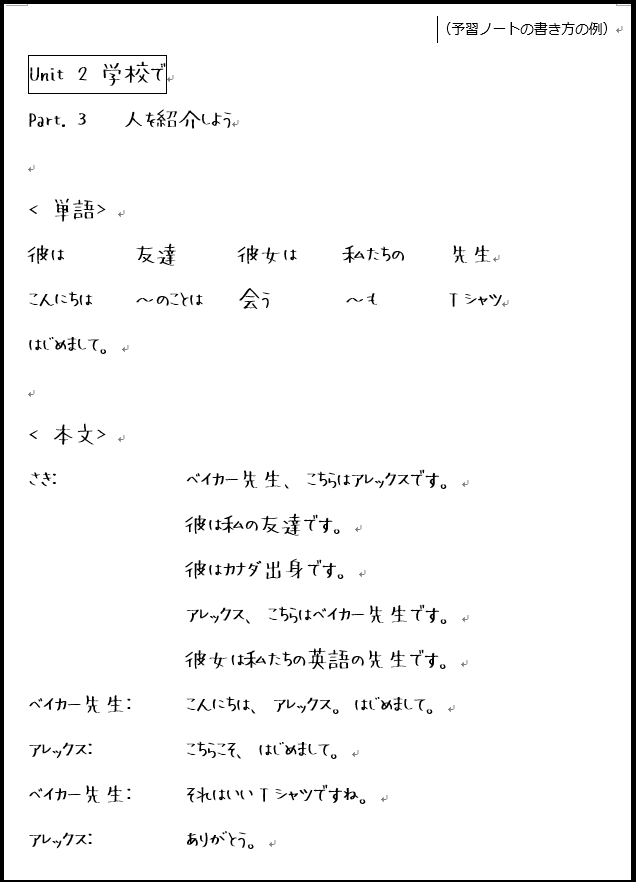 （予習ノートの書き方の例）
Unit 2 学校で
Part. 3 人を紹介しよう
< 単語>
彼は 友達 彼女は 私たちの 先生
こんにちは ～のことは 会う ～も Tシャツ
はじめまして。
< 本文>
さき: ベイカー先生、こちらはアレックスです。
彼は私の友達です。
彼はカナダ出身です。
アレックス、こちらはベイカー先生です。
彼女は私たちの英語の先生です。
ベイカー先生: こんにちは、アレックス。はじめまして。
アレックス: こちらこそ、はじめまして。
ベイカー先生: それはいいTシャツですね。
アレックス: ありがとう。